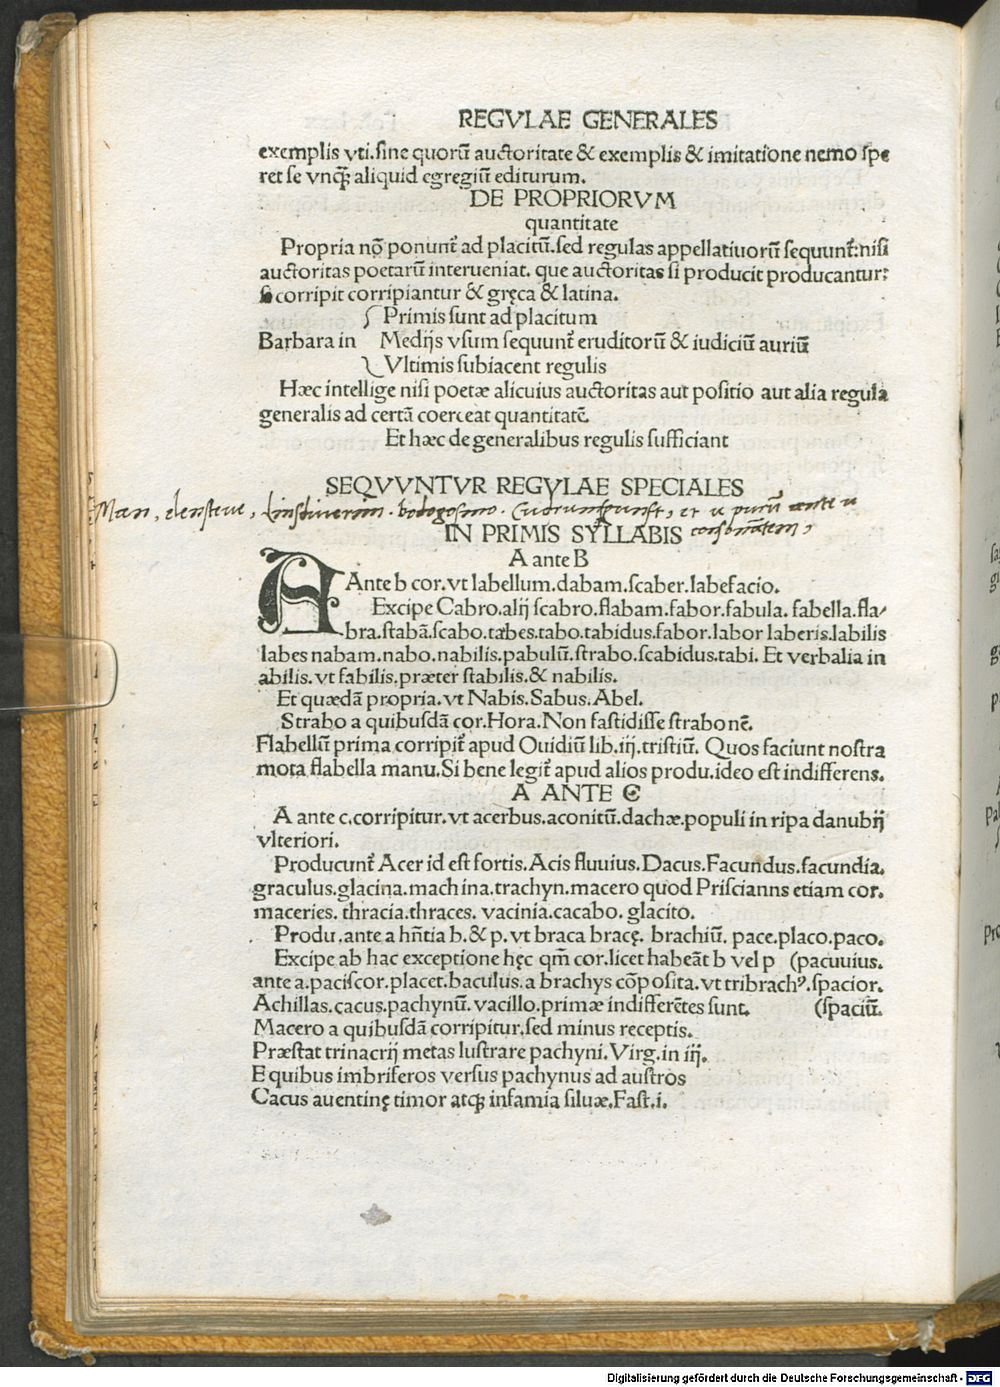 REGVLAE GENERALES
exemplis vti.sine quorū auctoritate & exemplis & imitatione nemo spe
ret se vnq̄ aliquid egregiū editurum.
DE PROPRIORVM
quantitate
Propria nō ponunt̄ ad placitū.sed regulas appellatiuorū sequunt̄:nisi
auctoritas poetarū interueniat. que auctoritas si producit producantur:
si corripit corripiantur & gręca & latina.
Primis sunt ad placitum
Barbara in Medijs vsum sequunt̄ eruditorū & iudiciū auriū
Vltimis subiacent regulis
Hæc intellige nisi poetæ alicuius auctoritas aut positio aut alia regula
generalis ad certā coerceat quantitatē.
Et hæc de generalibus regulis sufficiant
SEQVVNTVR REGVLAE SPECIALES
et u purū ante u
consonātem,
IN PRIMIS SYLLABIS
A ante B
A Ante b cor.vt labellum.dabam.scaber.labefacio.
Excipe Cabro.alij scabro.flabam.fabor.fabula. fabella.fla/
bra.stabā.scabo.tabes.tabo.tabidus.fabor.labor laberis.labilis
labes nabam.nabo.nabilis.pabulū.strabo.scabidus.tabi. Et verbalia in
abilis. vt fabilis.præter stabilis.& nabilis.
Et quædā propria.vt Nabis.Sabus.Abel.
Strabo a quibusdā cor.Hora.Non fastidisse strabonē.
Flabellū prima corripit̄ apud Ouidiū lib.iij.tristiū. Quos faciunt nostra
mota flabella manu.Si bene legit̄ apud alios produ.ideo est indifferens.
A ANTE C
A ante c.corripitur.vt acerbus.aconitū.dachæ.populi in ripa danubij
vlteriori.
Producunt̄ Acer id est fortis.Acis fluuius.Dacus.Facundus.facundia.
graculus.glacina.machina.trachyn.macero quod Priscianns etiam cor.
maceries. thracia.thraces. vacinia.cacabo. glacito.
Produ.ante a hn̄tia b.& p.vt braca bracę. brachiū. pace.placo.paco.
Excipe ab hac exceptione hęc qm̄ cor.licet habeāt b vel p (pacuuius.
ante a.paciscor.placet.baculus.a brachys cōposita.vt tribrachꝰ.spacior.
Achillas.cacus.pachynū.vacillo.primæ indifferētes sunt. (spaciū.
Macero a quibusdā corripitur.sed minus receptis.
Præstat trinacrij metas lustrare pachyni.Virg.in iij.
E quibus imbriferos versus pachynus ad austros
Cacus auentinę timor atq̨ infamia siluæ.Fast.i.
Digitalisierung gefördert durch die Deutsche Forschungsgemeinschaft - DFG